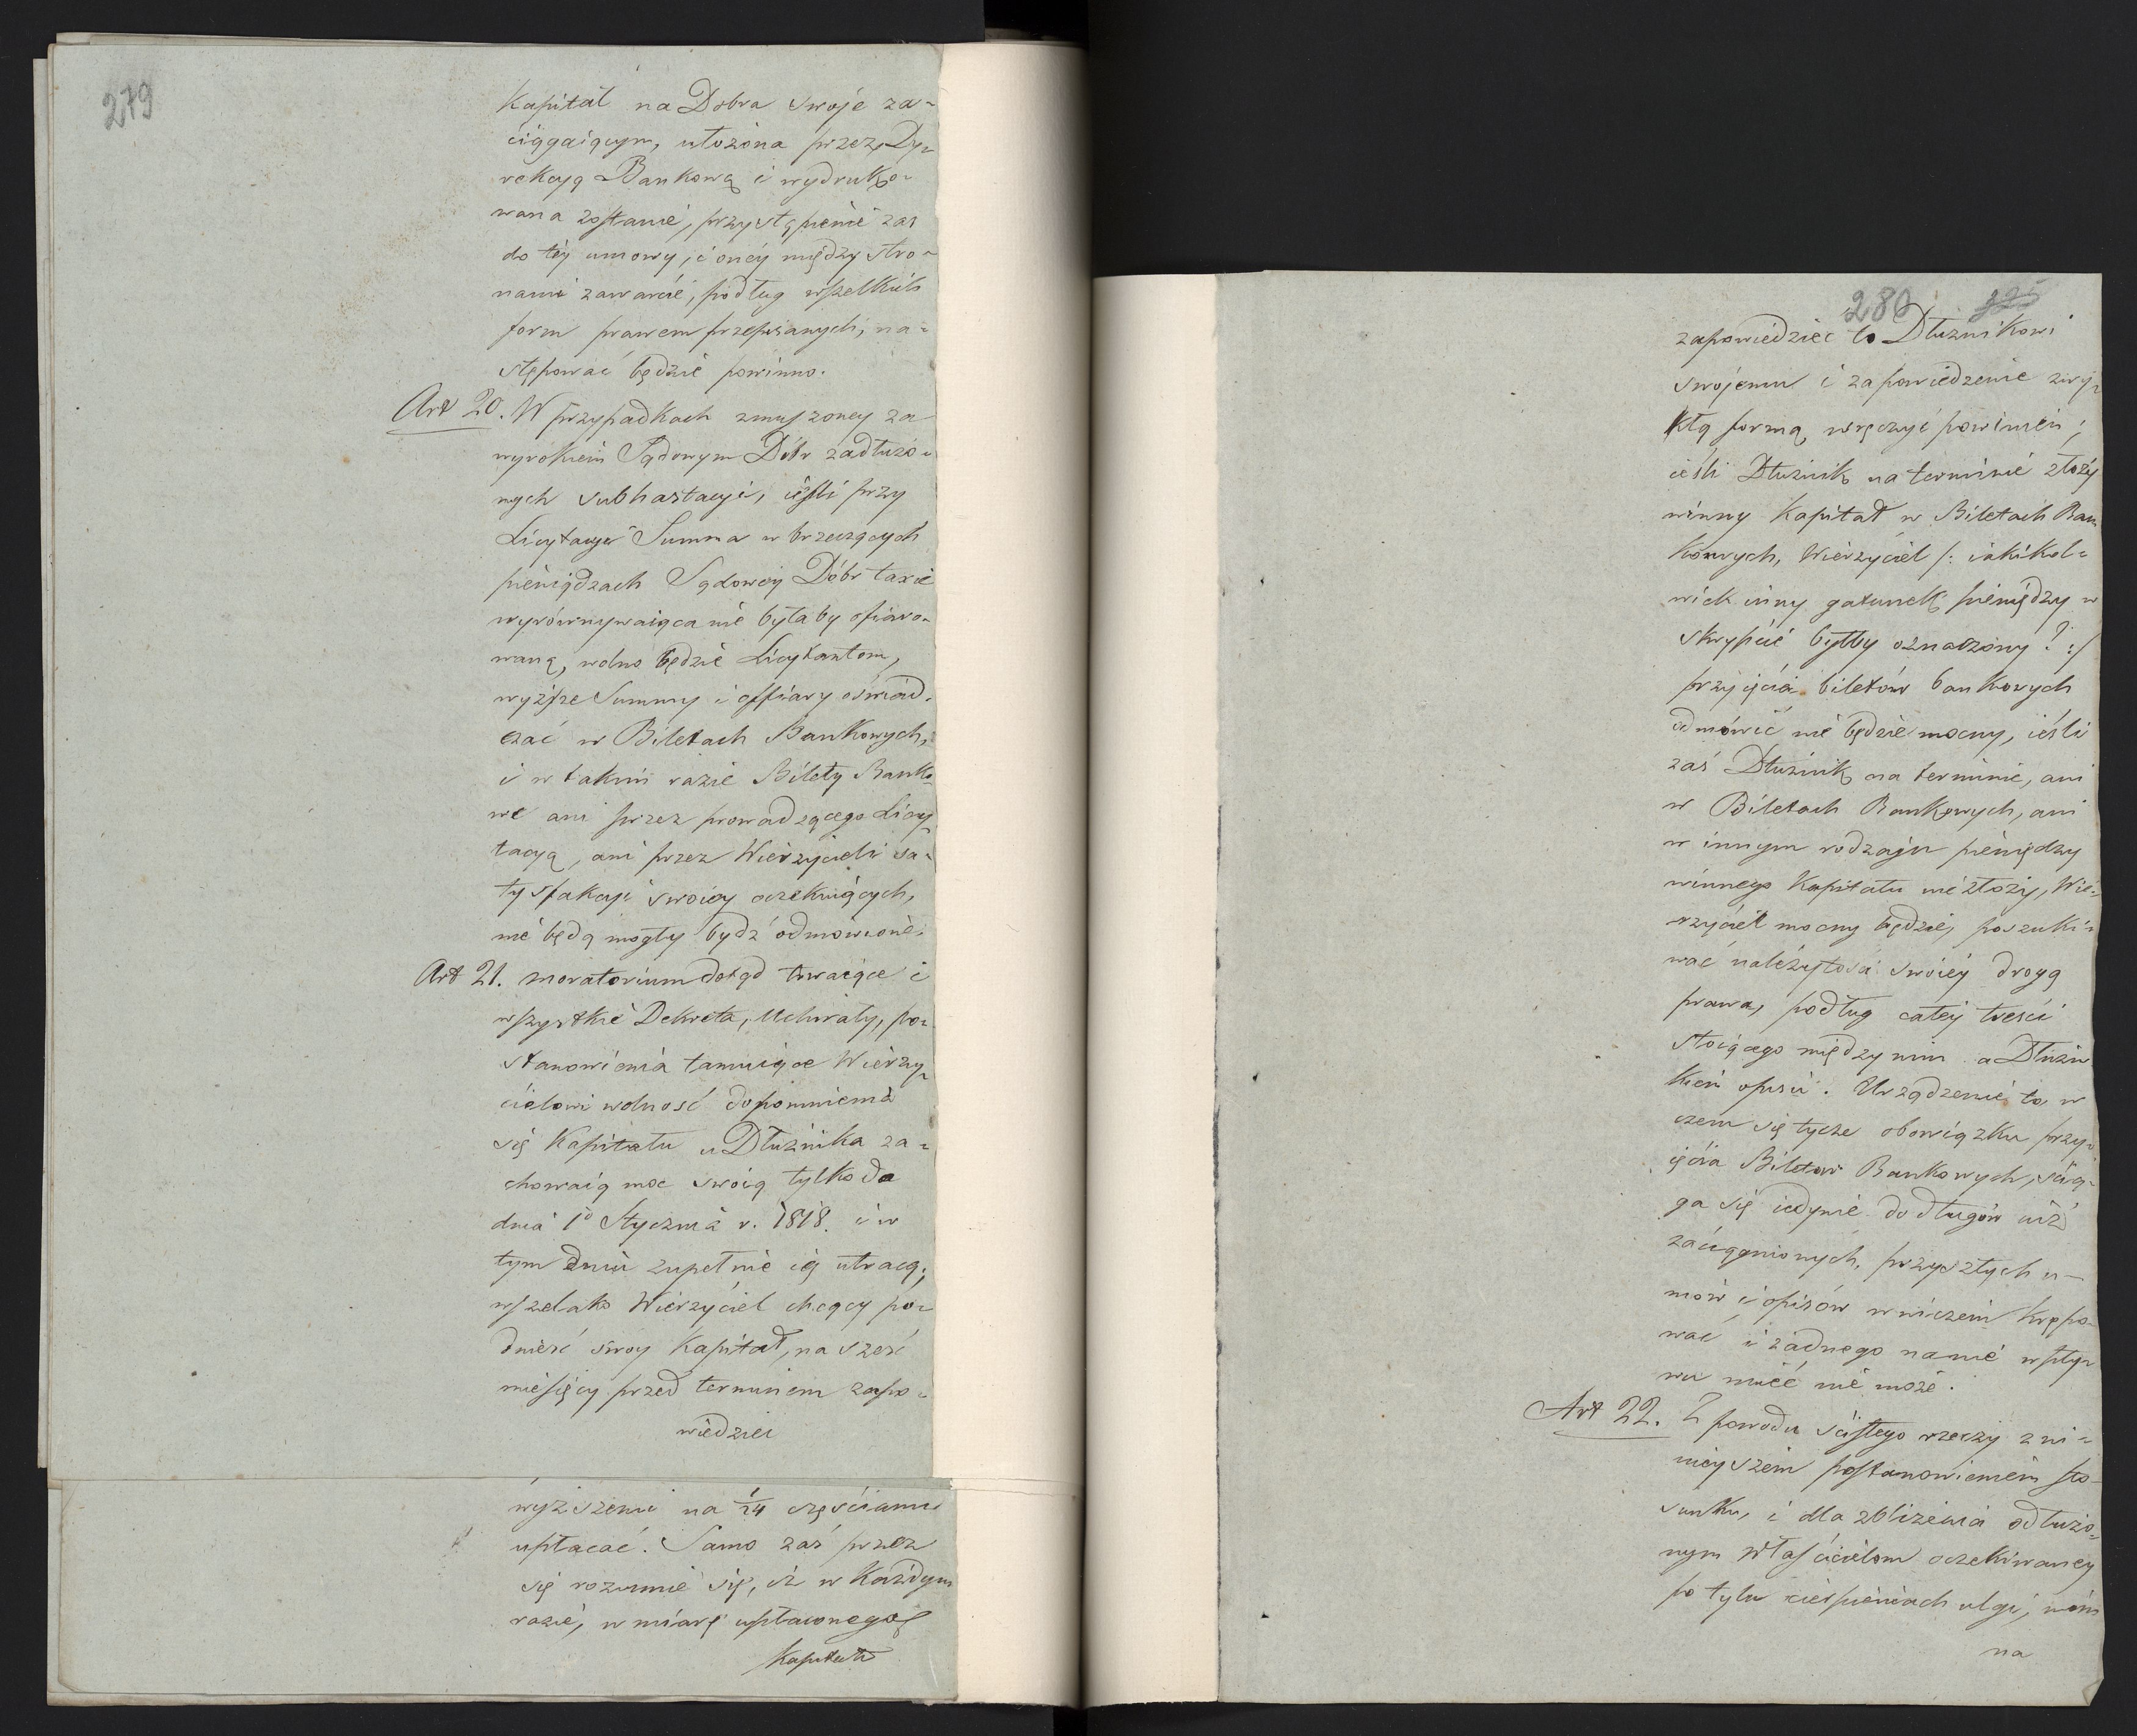 279
Kapitał na Dobra swoje za-
ciągaiącym, ułożona przez Dy-
rekcyą Bankową i wydruko-
wana zostanie, przystąpienie zas
do téy umowy, i onéy między stro-
nami zawarcié, podług wszelkich
form prawem przepisanych, na-
stępować będzie powinno.
Art 20. W przypadkach zmuszoney za
wyrokiem Sądowym Dóbr zadłużo-
nych subhastacyi, iesli przy
Licytacyi Summa w brzęczących
pieniądzach Sądowéy Dóbr taxie
wyrównywaiąca nie była by ofiaro-
waną, wolno będzie Licytantom,
wyższe Summy i offiary oświad-
czać w Biletach Bankowych,
i w takim razie Bilety Banko-
we ani przez prowadzącego Licy-
tacyą, ani przez Wierzycieli sa-
tysfakcyi swoiey oczekuiących,
nie będą mogły bydź odmówione.
Art 21. moratorium dotąd trwaiące i
wszystkie Dekreta, Uchwały, po-
stanowienia tamuiące Wierzy-
cielowi wolność dopomnienia
się Kapitału u Dłużnika za-
chowaią moc swoią tylko do
dnia 1o Stycznia r. 1818. i w
tym dniu zupełnie ią utracą;
wszelako Wierzyciel chcący po-
dnieść swoy Kapitał, na sześć
miesięcy przed terminem zapo-
wiedziec
wyższemi na 1/24 częściami
upłacać. Samo zaś przez
się rozumie się, iż w Każdym
razie, w miarę upłaconego
Kapitału
280 225
zapowiedziec to Dłużnikowi
swojemu i zapowiedzenie zwy-
kłą formą, wręczyć powinien;
ieśli Dłużnik na terminie złoży
winny Kapitał w Biletach Ban
kowych, Wierzyciel /: iakikol-
wiek inny gatunek pieniędzy w
skrypcie byłby oznaczony? :/
przyięcia biletów bankowych
odmówić nie będzie mocny, ieśli
zaś Dłużnik na terminie, ani
w Biletach Bankowych, ani
w innym rodzaju pieniędzy
winnego Kapitału nie złoży, Wie-
rzyciel mocny będzie, poszuki-
wać należytości swoiéy drogą
prawa, podług całéy treści
stoiącego między nim a Dłużni
kiem opisu. Urządzenie to w
czem się tycze obowiązku przy-
ięcia Biletow Bankowych, ścią-
ga się iedynie do długów iuż
zaciągnionych, przyszłych u-
mów i opisów w niczem krępo-
wać i żadnego na nie wpły-
wu mieć nie może.
Art 22. Z powodu ścisłego rzeczy z ni-
nieyszem postanowieniem sto-
sunku, i dla zbliżenia odłużo-
nym Właścicielom oczekiwaney
po tylu cierpieniach ulgi,
na